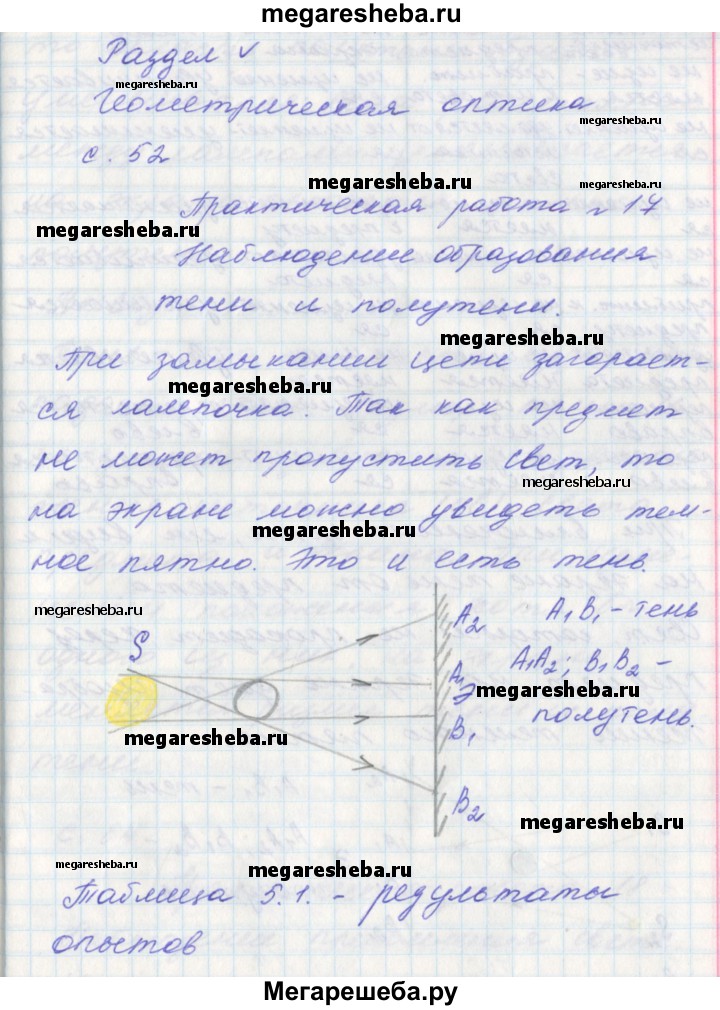 megaresheba.ru
Раздел V
megaresheba.ru
Геометрическая оптика
megaresheba.ru
с. 52
megaresheba.ru
Практическая работа № 17
megaresheba.ru
Наблюдение образования
тени и полутени.
megaresheba.ru
При замыкании цепи загорает-
megaresheba.ru
ся лампочка. Так как предмет
не может пропустить свет, то
megaresheba.ru
на экране можно увидеть тем-
megaresheba.ru
ное пятно. Это и есть тень.
megaresheba.ru
A2 A1B1 - тень
S
A1 A1A2; B1B2 -
Э
megaresheba.ru
полутень.
B1
megaresheba.ru
B2
megaresheba.ru
megaresheba.ru
Таблица 5.1. - результаты
опытов
megaresheba.ru
Мегарешеба.ру